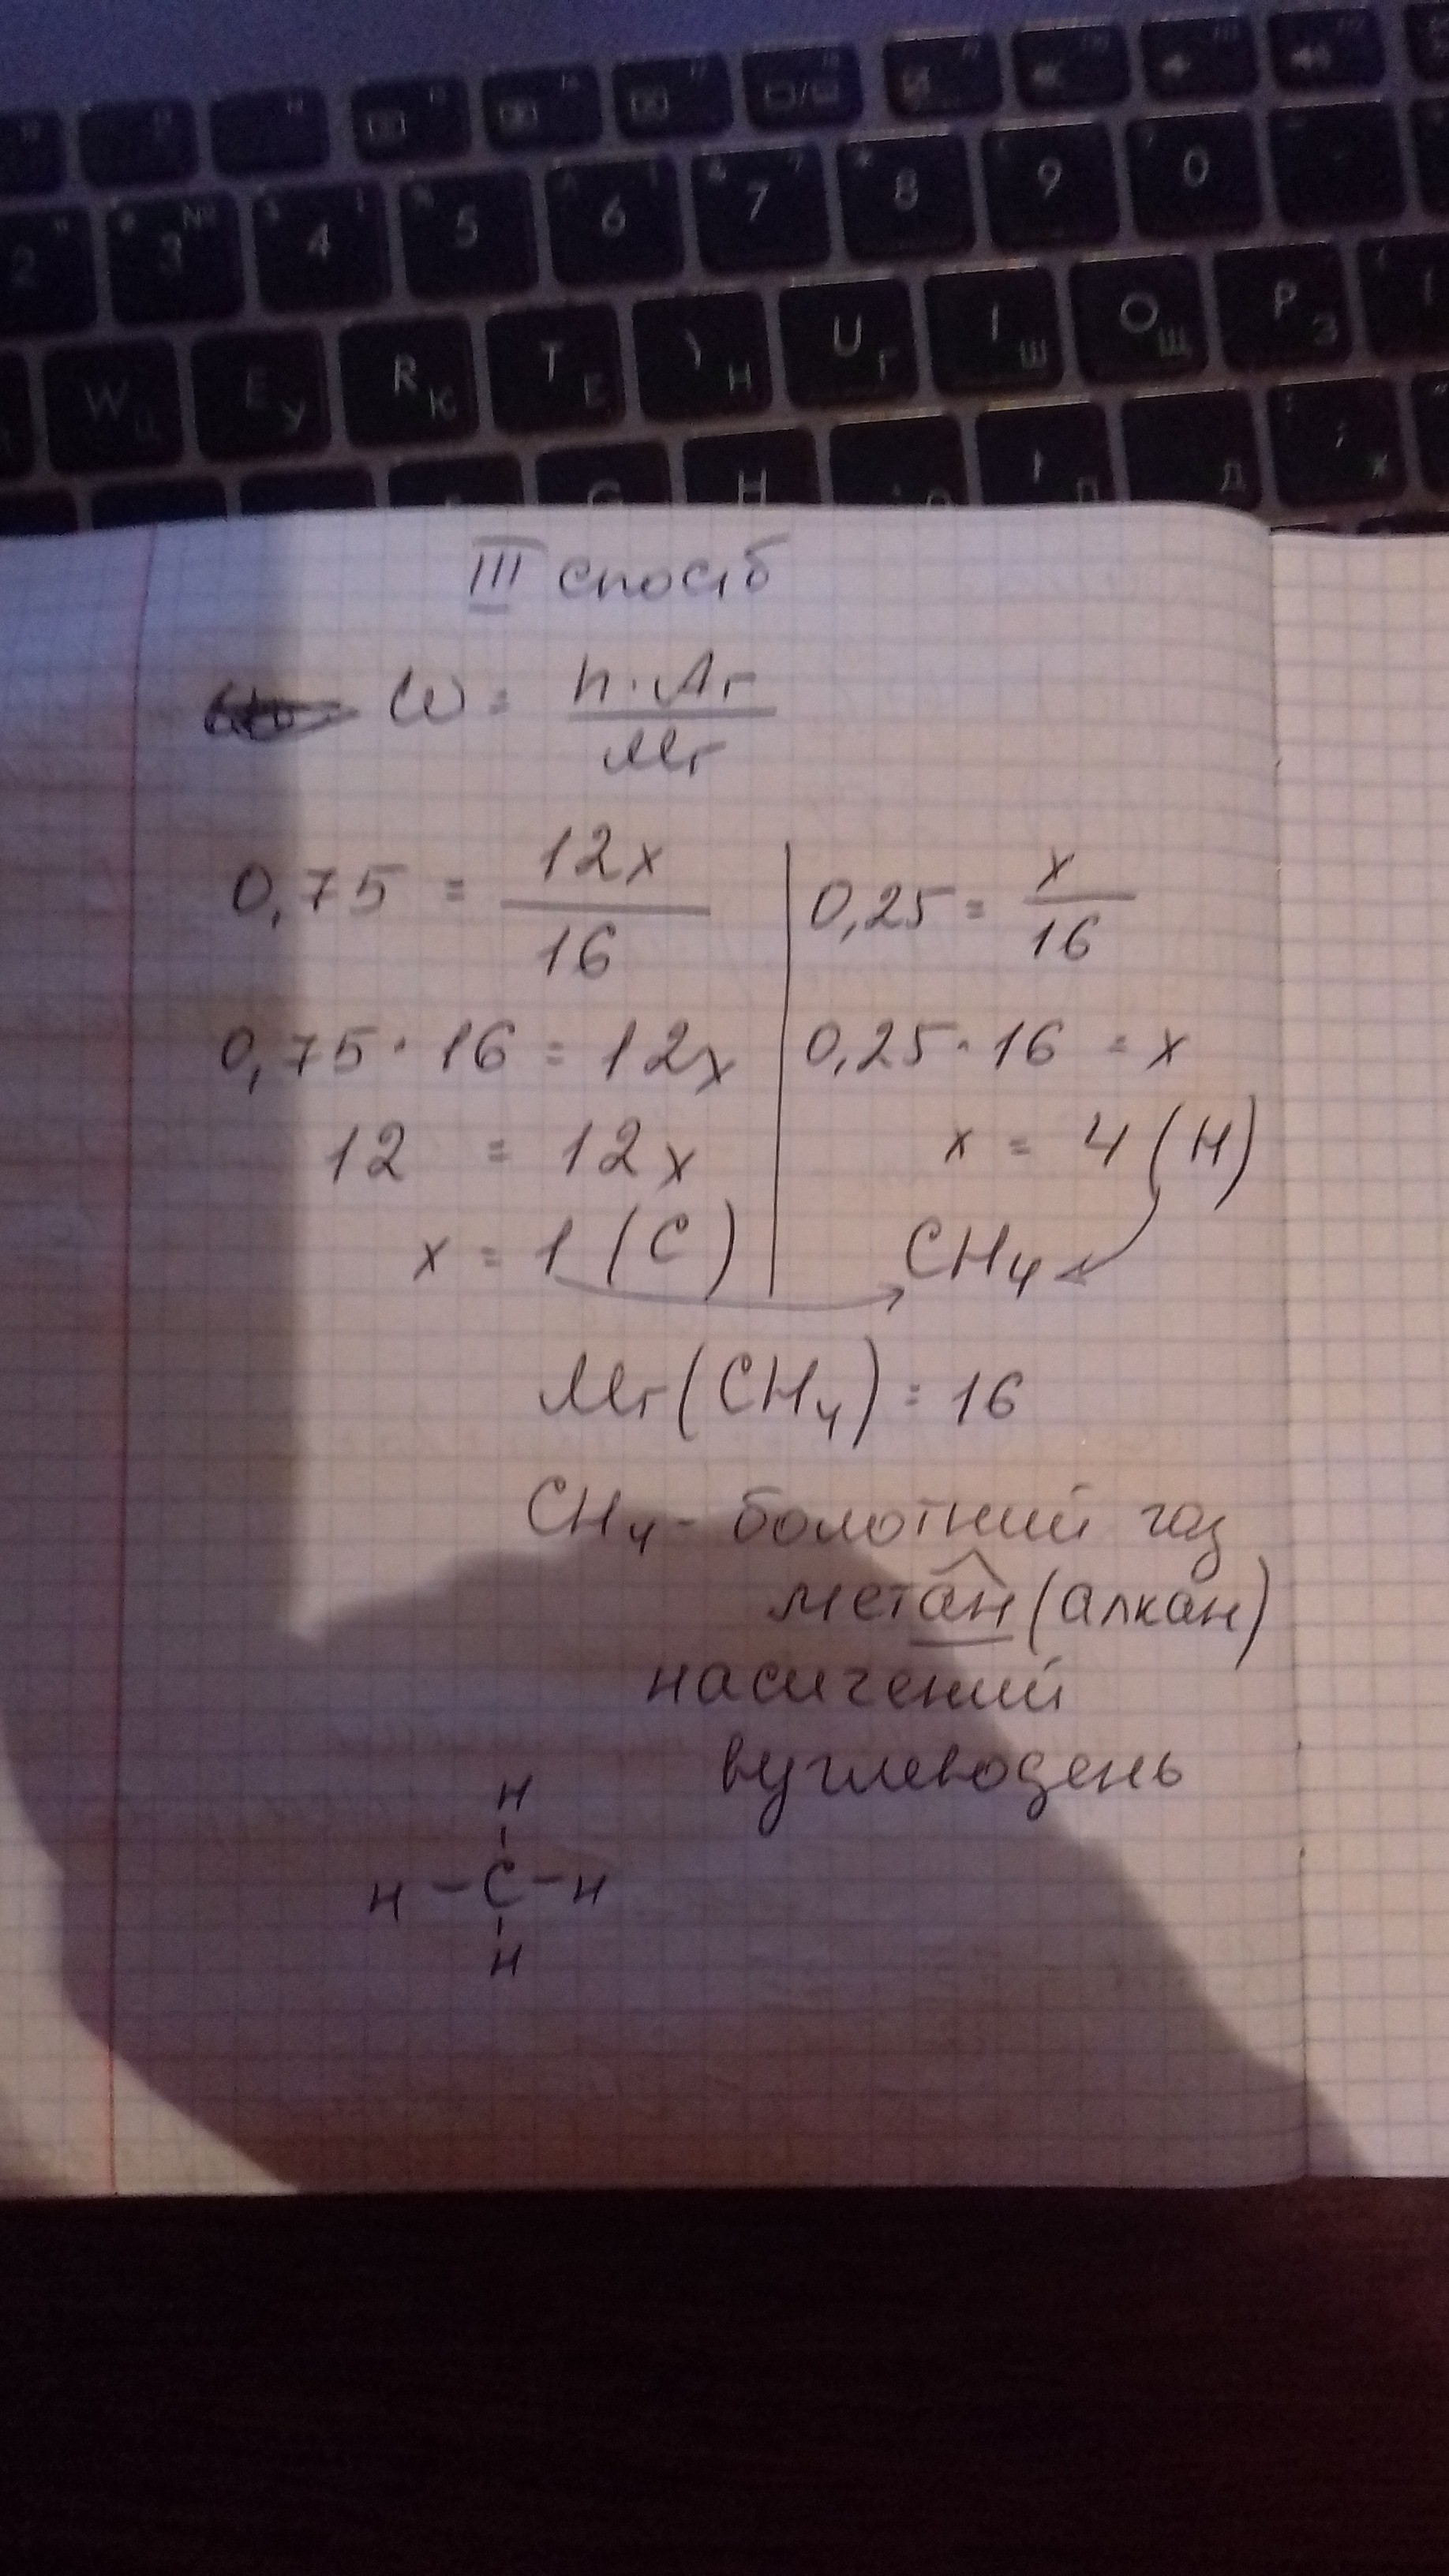 2 3 № 4 5 6 7 8 9 0
W Ц E У R К T Е Н U Г I Ш O Щ P З
G H Д Ж
III спосіб
W = n·Ar / Mr
0,75 = 12x / 16
0,75 · 16 = 12x
12 = 12x
x = 1 (C)
0,25 = x / 16
0,25 · 16 = x
x = 4 (H)
CH₄
Mr(CH₄) = 16
CH₄ - болотний газ
метан (алкан)
насичений
вуглеводень
H
H - C - H
H